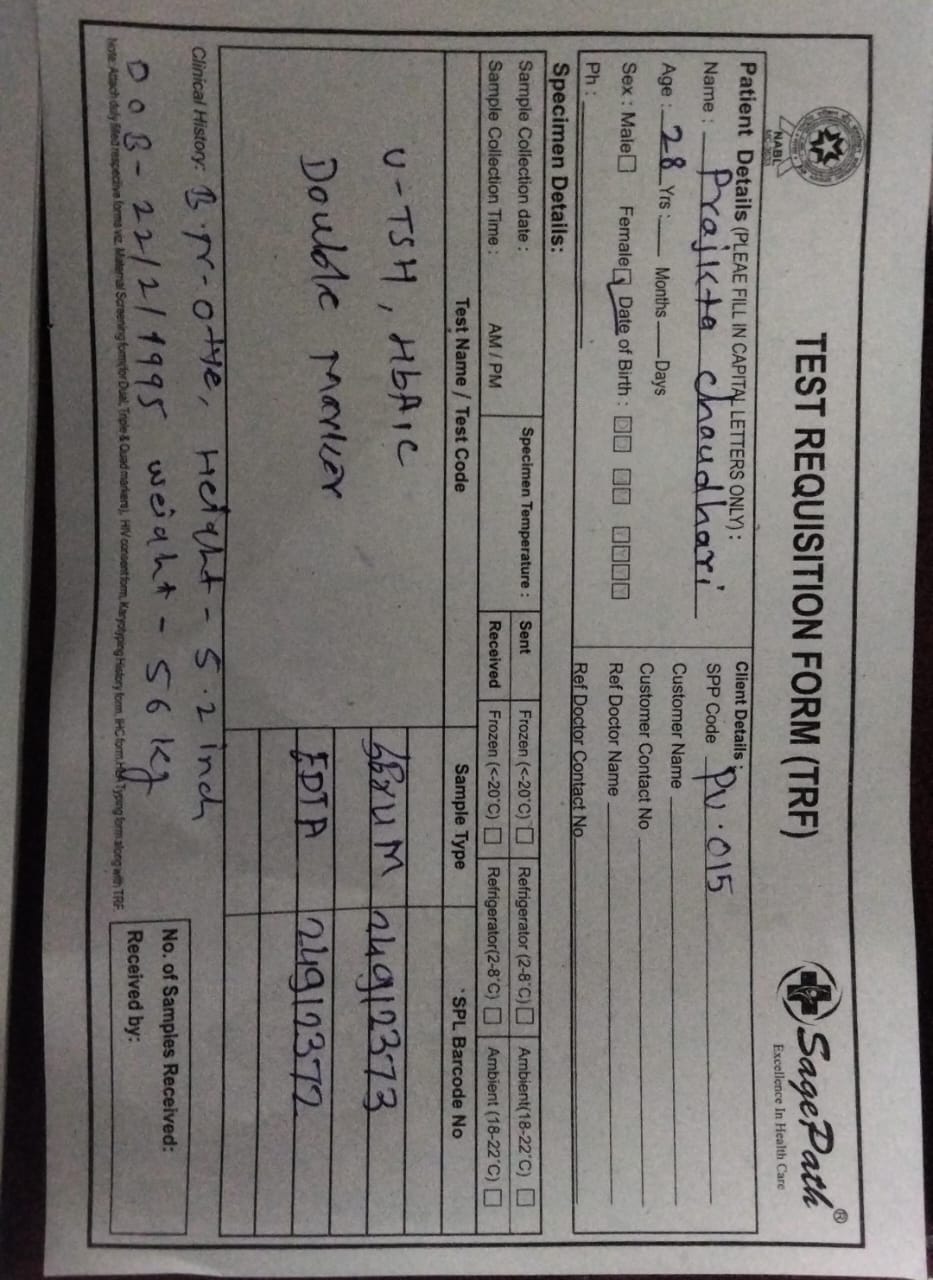 NABL
TEST REQUISITION FORM (TRF)
SagePath®
Excellence In Health Care
Patient Details (PLEAE FILL IN CAPITAL LETTERS ONLY) :
Name : Prajkta chaudhari
Age : 28 Yrs : Months Days
Sex : Male Female Date of Birth :
Ph :
Client Details :
SPP Code PU.015
Customer Name
Customer Contact No
Ref Doctor Name
Ref Doctor Contact No
Specimen Details:
Sample Collection date :
Sample Collection Time : AM / PM
Specimen Temperature :
Sent Frozen (<-20°C) Refrigerator (2-8°C) Ambient(18-22°C)
Received Frozen (<-20°C) Refrigerator(2-8°C) Ambient (18-22°C)
Test Name / Test Code Sample Type *SPL Barcode No
U-TSH, HbA1c SERUM 24912373
Double marker EDTA 24912372
Clinical History: B.Pr-O+ve, Height - 5.2 inch
DOB - 22/2/1995 weight - 56 kg
Note: Attach duly filled respective forms viz. Maternal Screening form(for Dual, Triple & Quad markers), HIV consent form, Karyotyping History form, IHC form, HLA Typing form along with TRF.
No. of Samples Received:
Received by: